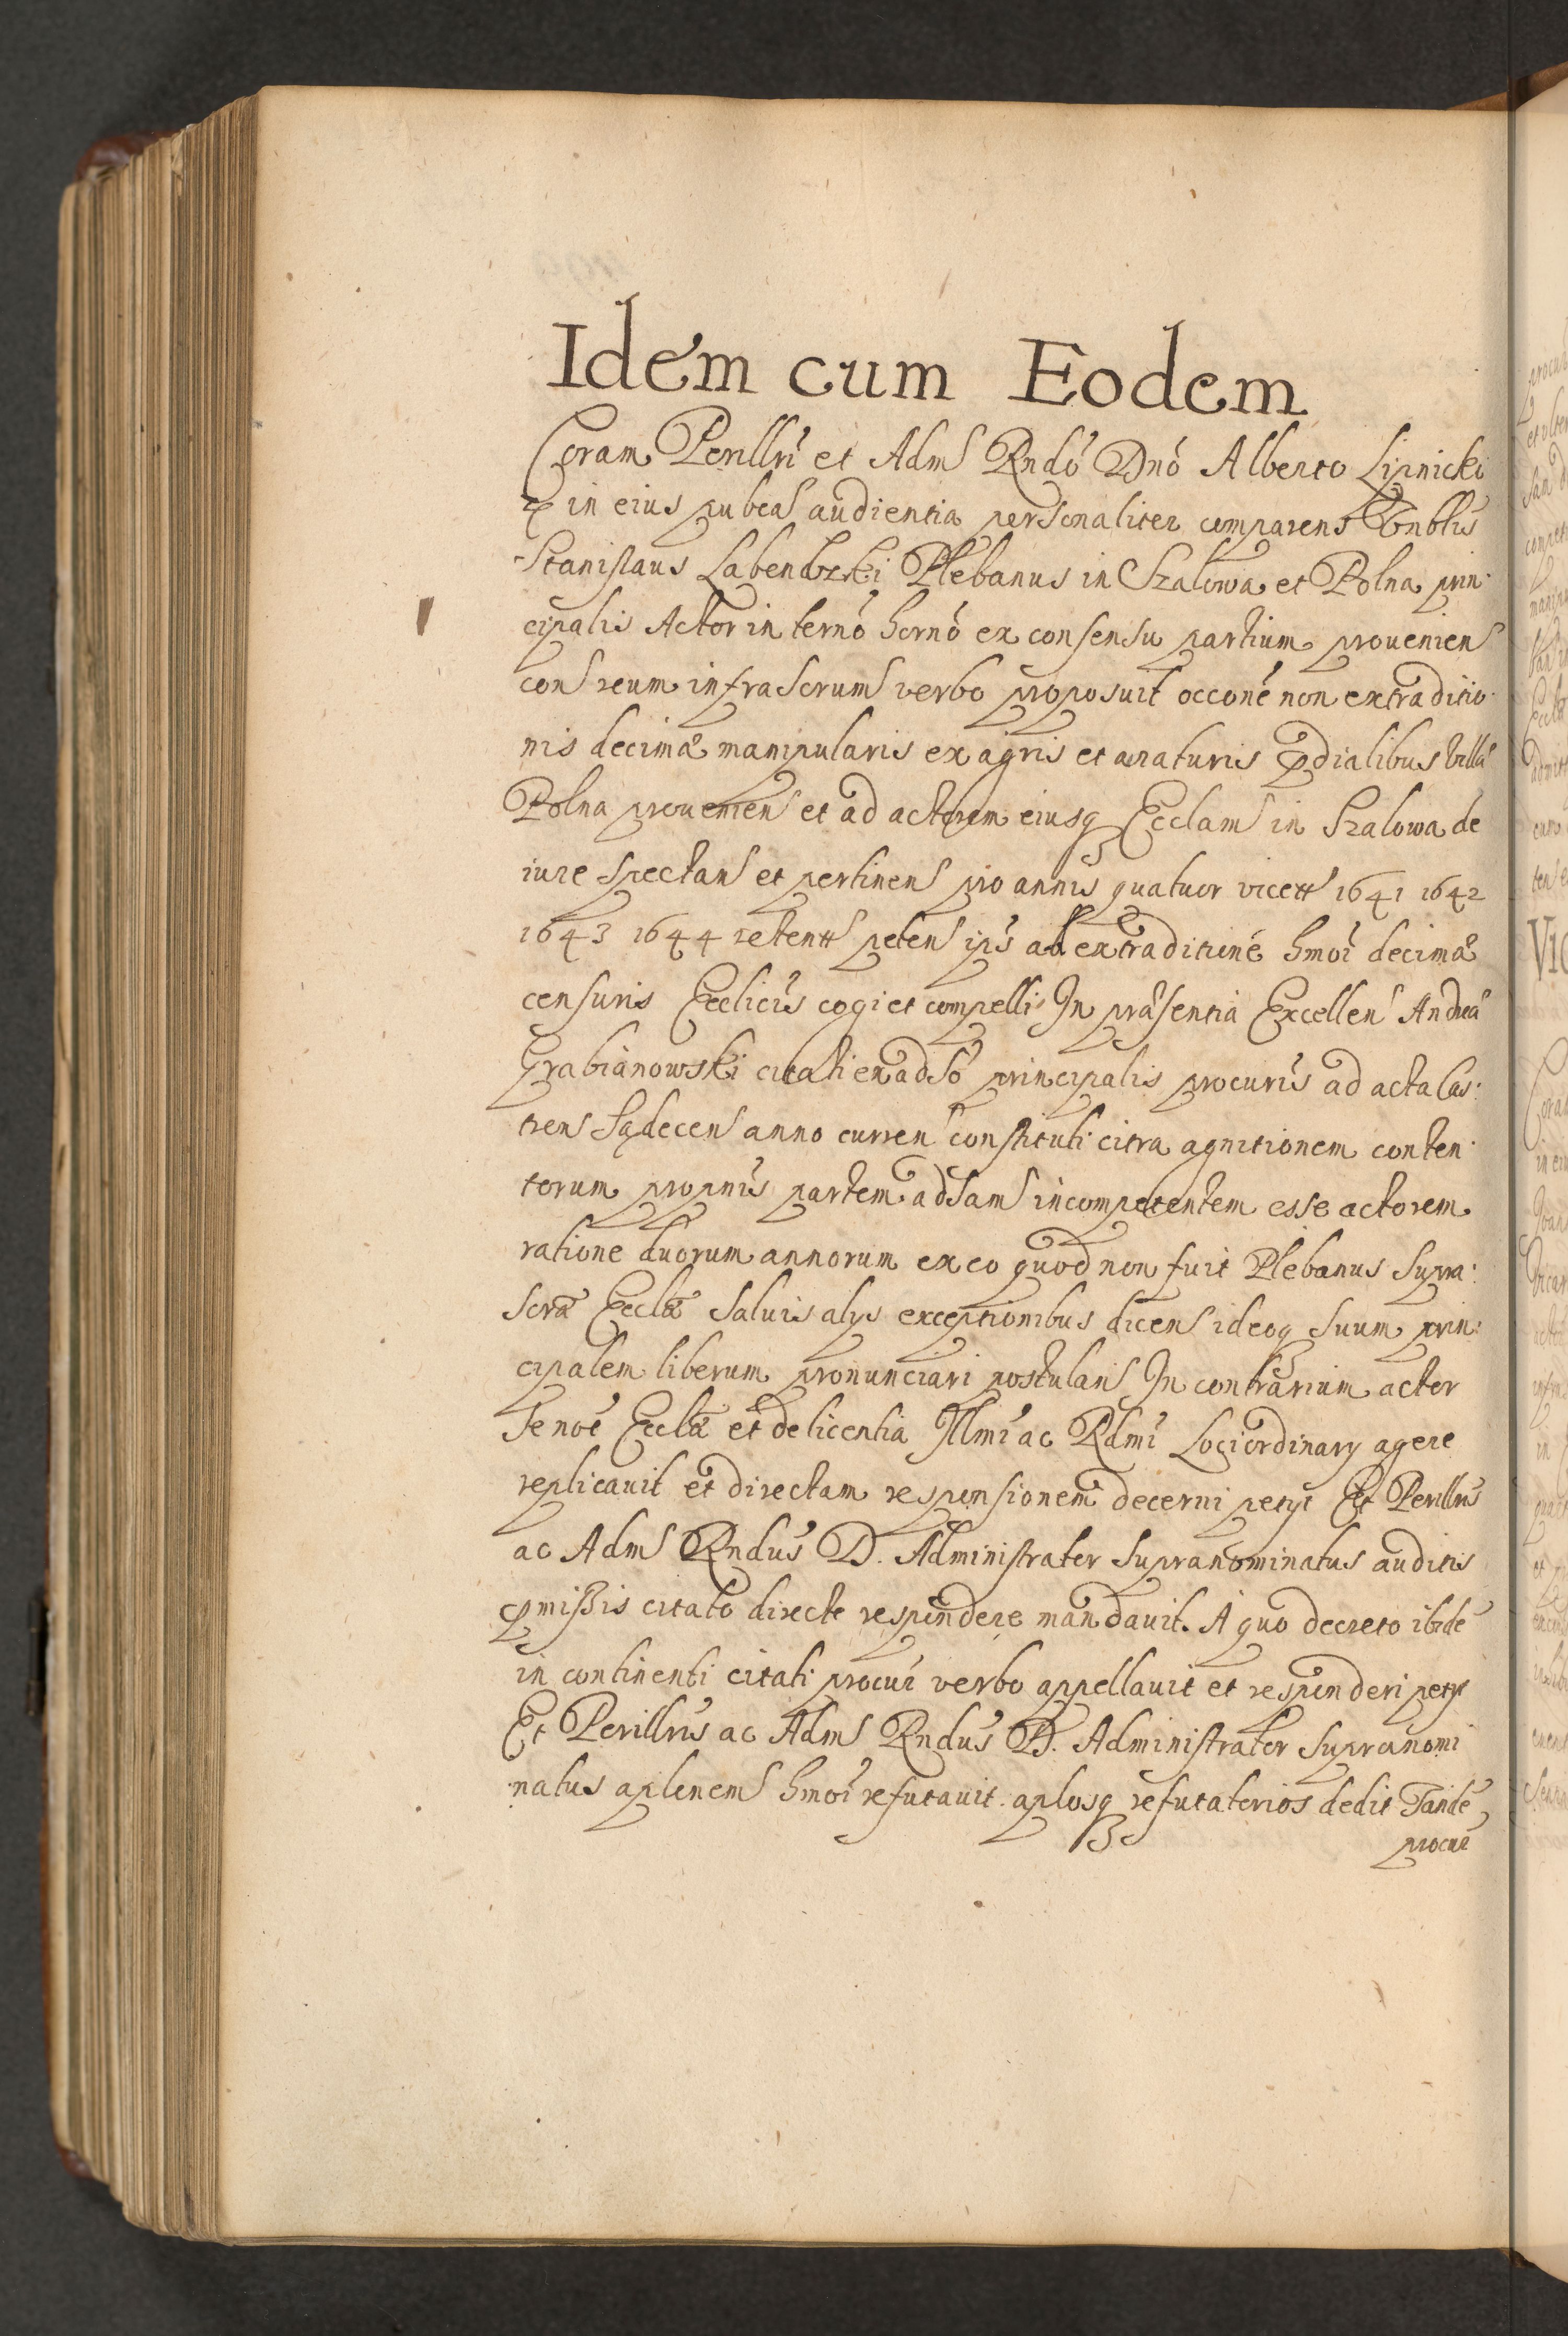 Idem cum Eodem
Coram Perillri et Adm Rndo Dno Alberto Lipnicki
in eius pubca audientia personaliter comparens Vnblis
Stanislaus Labendzki Plebanus in Szalowa et Polna prin:
cipalis Actor in termo herno ex consensu partium prouenien
con reum infrascrum verbo proposuit occone non extraditio
nis decimæ manipularis ex agris et araturis prædialibus villæ
Polna prouenien et ad actorem eiusq Ecclam in Szalowa de
iure spectan et pertinen pro annis quatuor vicett 1641 1642
1643 1644 retentt peten ips ad extraditione hmoi decimæ
censuris Ecclicis cogi et compelli In præsentia Excellen Andreæ
Grabianowski citati ex adso principalis procuris ad acta Cas:
tren Sądecen anno curren constituti citra agnitionem conten:
torum propriis partem adsam incompetentem esse actorem
ratione duorum annorum ex eo quod non fuit Plebanus Supra:
scræ Ecclæ Saluis alys exceptionibus dicens ideoq Suum prin:
cipalem liberum pronunciari postulans In contrarium actor
Se noe Ecclæ et de licentia Illmi ac Rdmi Loci ordinary agere
replicauit et directam responsionem decerni petyt Et Perillris
ac Adm Rndus D. Administrator Supranominatus auditis
præmißis citato directe respondere mandauit. A quo decreto ibide
in continenti citati procur verbo appellauit et responderi petyt
Et Perillris ac Adm Rndus D. Administrator Supranomi
natus aplonem hmoi refutauit aplosq refutatorios dedit Tande
procur